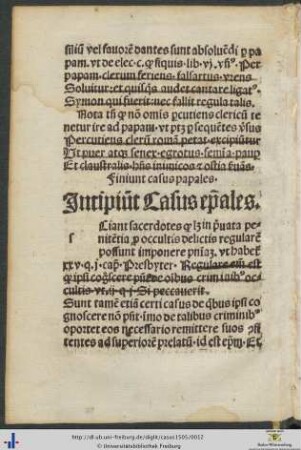 ſiliū vel fauorē dantes ſunt abſoluēdi ꝑ pa
papam. vt de elec. c. ꝙ ſiquis. lib. vj. vñ. Per
papam. clerum feriens. falſarius. vrens
Soluitur: et quiſqꝫ audet cantare ligatꝰ
Symon qui fuerit: nec fallit regula talis.
Nota tñ ꝙ nō omīs ꝑcutiens clericū te
netur ire ad papam. vt ptꝫ ꝑ ſequētes ꝟſus
Percutiens clerū romā petat: excipiūtur
Ut puer atqꝫ ſenex egrotus femīa pauꝑ
Et clauſtralis hñs inimicos
Finiunt caſus papales.
Incipiūt Caſus eꝑales.
Sciant ſacerdotes ꝙ lꝫ in ꝓuata pe
nitētia ꝓ occultis delictis regularē
poſſunt imponere pniaꝫ. vt habet̄
xxv. q. j. capͥ. Presbyter. Regulare eñ eſt
ꝙ ipſi cogſcere de oībus criminibꝰ oc
cultis vt Si peccauerit.
Sunt tamē etiā certi caſus de qͥbus ipſi co
gnoſcere nō pñt. Imo de talibus criminibꝰ
oportet eos neceſſario remittere ſuos
tentes ad ſuperiorē prelatū. id eſt eꝑm. Et
http://dl.ub.uni-freiburg.de/diglit/casus1505/0012
© Universitätsbibliothek Freiburg
Baden-Württemberg